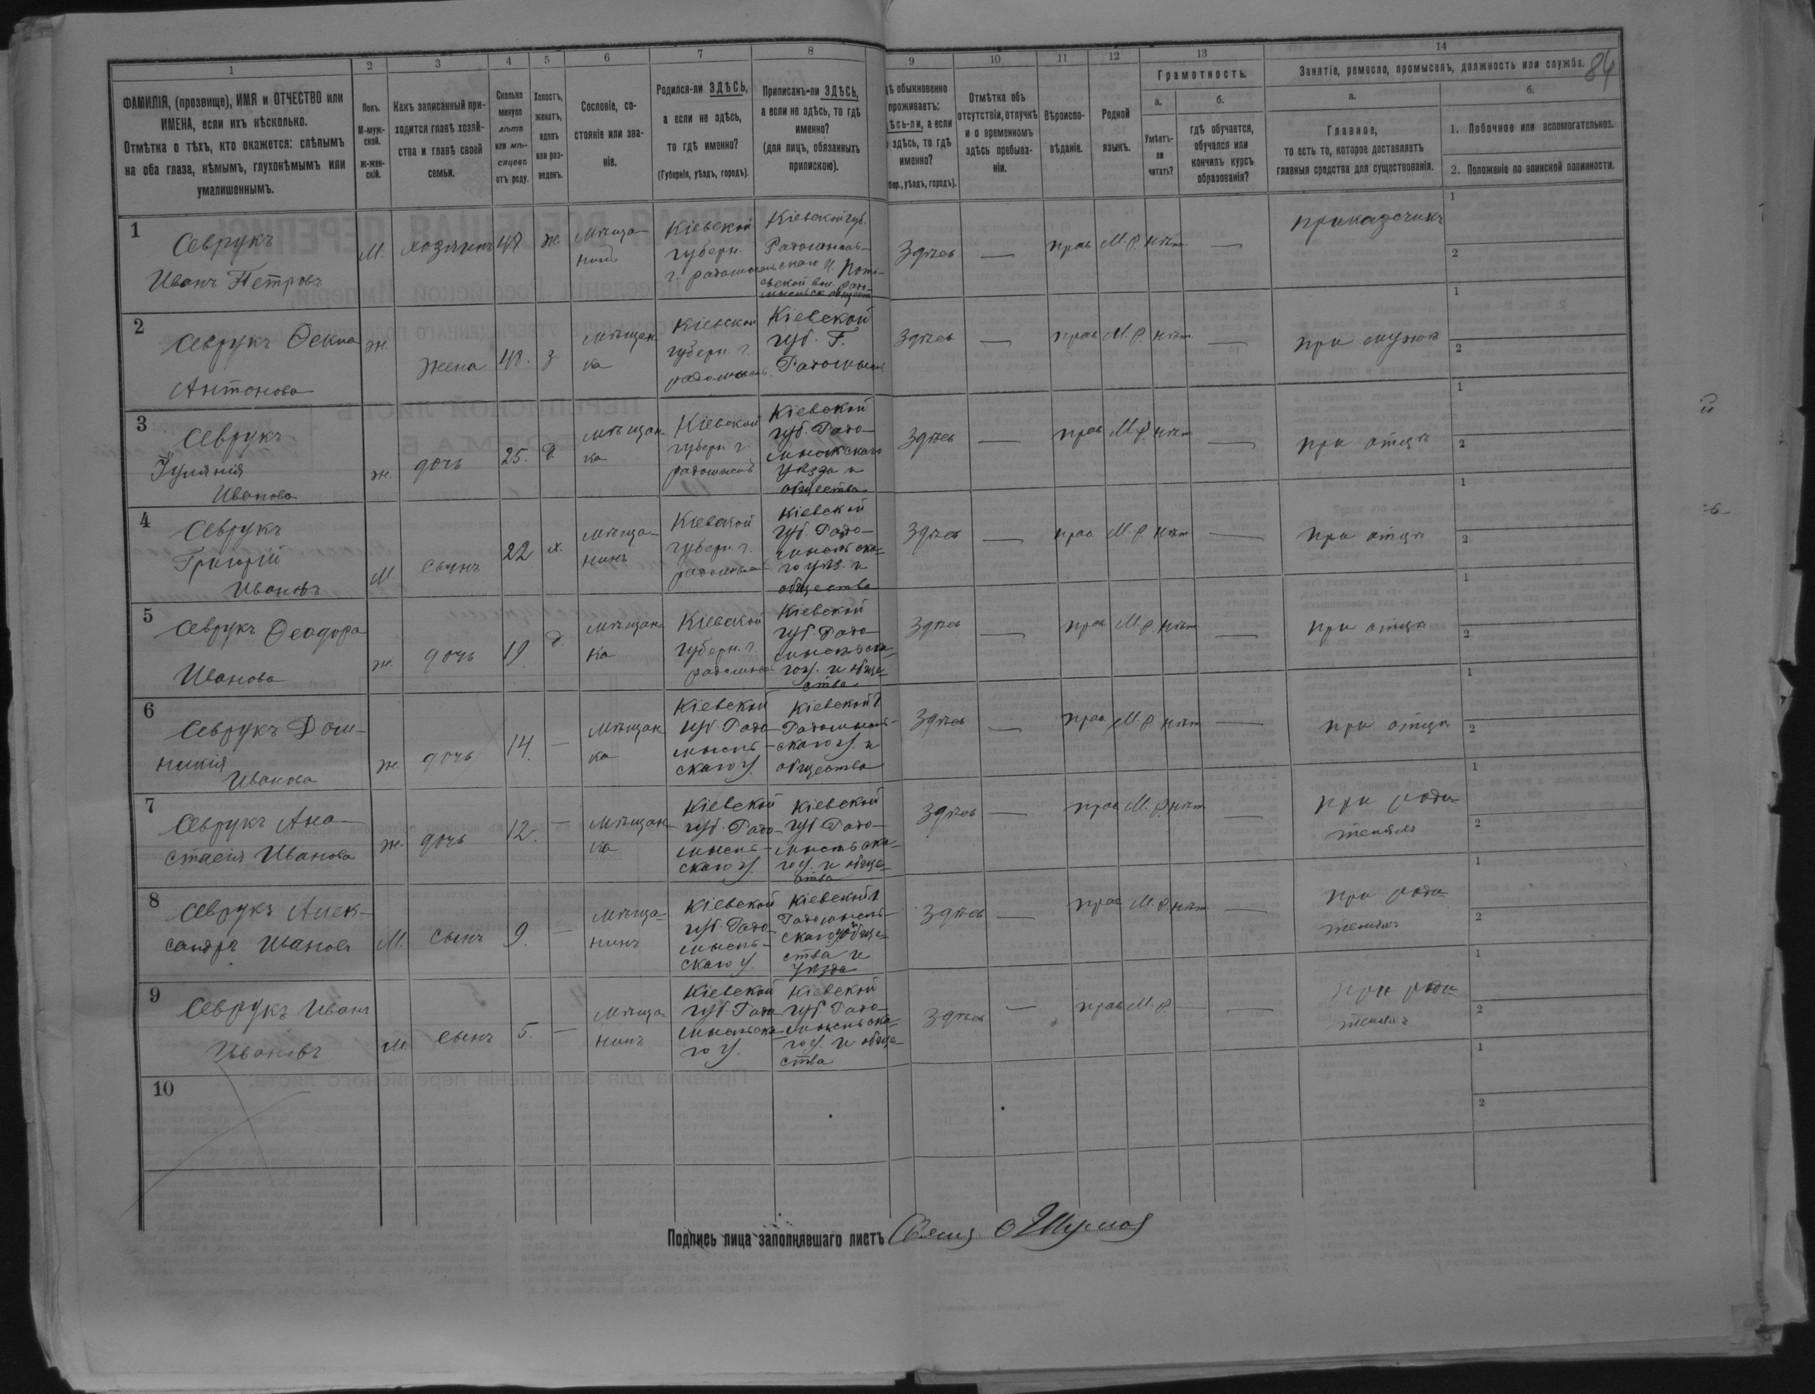 84
1 2 3 4 5 6 7 8 9 10 11 12 13 14
ФАМИЛІЯ, (прозвище), ИМЯ и ОТЧЕСТВО или
ИМЕНА, если ихъ нѣсколько.
Отмѣтка о тѣхъ, кто окажется: слѣпымъ
на оба глаза, нѣмымъ, глухонѣмымъ или
умалишеннымъ.
Полъ.
М-муж-
ской.
Ж-жен-
скій.
Какъ записанный при-
ходится главѣ хозяй-
ства и главѣ своей
семьи.
Сколько
минуло
лѣтъ
или мѣ-
сяцевъ
отъ роду.
Холостъ,
женатъ,
вдовъ
или раз-
веденъ.
Сословіе, со-
стояніе или зва-
ніе.
Родился-ли ЗДѢСЬ,
а если не здѣсь,
то гдѣ именно?
(Губернія, уѣздъ, городъ).
Приписанъ-ли ЗДѢСЬ,
а если не здѣсь, то гдѣ
именно?
(для лицъ, обязанныхъ
припискою).
дѣ обыкновенно
проживаетъ:
ѣсь-ли, а если
здѣсь, то гдѣ
именно?
бер., уѣздъ, городъ).
Отмѣтка объ
отсутствіи, отлучкѣ
и о временномъ
здѣсь пребыва-
ніи.
Вѣроиспо-
вѣданіе.
Родной
языкъ.
Грамотность.
а.
Умѣетъ-
ли
читать?
б.
гдѣ обучается,
обучался или
кончилъ курсъ
образованія?
Занятіе, ремесло, промыселъ, должность или служба.
а.
Главное,
то есть то, которое доставляетъ
главныя средства для существованія.
б.
1. Побочное или вспомогательное.
2. Положеніе по воинской повинности.
1
Севрукъ
Иванъ Петровъ
М. хозяинъ 48 ж.
Мѣща-
нинъ
Кіевской
губерн.
г. радомысль
Кіевской губ.
Радомысль-
скаго у.
Здѣсь — прав М.р. нѣт —
приказчикъ
1
2
2
Севрукъ Ѳекла
Антонова
ж. жена 48. з.
Мѣщан
ка
Кіевской
губерн. г.
радомысль
Кіевской
губ. Г.
Радомысль
Здѣсь — прав М.р. нѣт —
при мужѣ
1
2
3
Севрукъ
Іуліанія
Иванова
ж. дочь 25. д.
Мѣщан
ка
Кіевской
губерн г.
радомысль
Кіевской
губ. Радо-
мысльскаго
уѣзда и
общества
Здѣсь — прав М.р. нѣт —
при отцѣ
1
2
4
Севрукъ
Григорій
Ивановъ
М сынъ 22 х.
Мѣща-
нинъ
Кіевской
губерн. г.
радомысль
Кіевской
губ. Радо-
мысльска-
го уѣз. и
общества
Здѣсь — прав М.р. нѣт —
при отцѣ
1
2
5
Севрукъ Ѳеодора
Иванова
ж. дочь 19. д.
Мѣщан
ка
Кіевской
губерн. г.
радомысль
Кіевской
губ. Радо-
мысльска-
го у. и обще-
ства
Здѣсь — прав М.р. нѣт —
при отцѣ
1
2
6
Севрукъ Доми-
никія
Иванова
ж дочь 14. —
Мѣщан
ка
Кіевской
губ. Радо
мысль-
скаго у.
Кіевской г
Радомысль-
скаго у. и
общества
Здѣсь — прав М.р. нѣт —
при отцѣ
1
2
7
Севрукъ Ана-
стасія Иванова
ж. дочь 12. —
Мѣщан
ка
Кіевской
губ. Радо-
мысль-
скаго у.
Кіевской
губ. Радо-
мысльска-
го у. и обще-
ства
Здѣсь — прав М.р. нѣт —
при роди-
теляхъ
1
2
8
Севрукъ Алек-
сандръ Ивановъ
М. сынъ 9. —
Мѣща-
нинъ
Кіевской
губ. Радо-
мысль-
скаго у.
Кіевской г
Радомысль-
скаго обще-
ства и
уѣзда
Здѣсь — прав М.р. нѣт —
при роди-
теляхъ
1
2
9
Севрукъ Иванъ
Ивановъ
М сынъ 5. —
Мѣща
нинъ
Кіевской
губ. Радо
мысльска-
го у.
Кіевской
губ. Радо-
мысльска-
го у. и обще-
ства
Здѣсь — прав М.р. — —
при роди-
теляхъ
1
2
10
1
2
Подпись лица заполнявшаго листъ